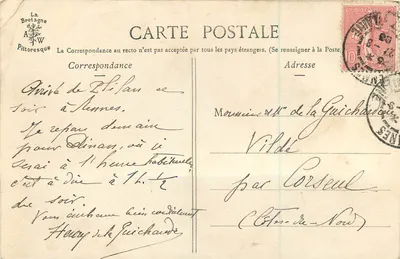 La
Bretagne
A W
Pittoresque
CARTE POSTALE
La Correspondance au recto n'est pas acceptée par tous les pays étrangers. (Se renseigner à la Poste.)
Correspondance
Adresse
Arrivé de St Ilan ce
soir à Rennes.
Je repars demain
pour Dinan, où je
serai à l'heure habituelle,
c'est à dire à 1 h. ½
du soir.
Vous embrasse bien cordialement
Henry de la Guichardière
Monsieur H de la Guichardière
Vildé
par Corseul
(Côtes-du-Nord)